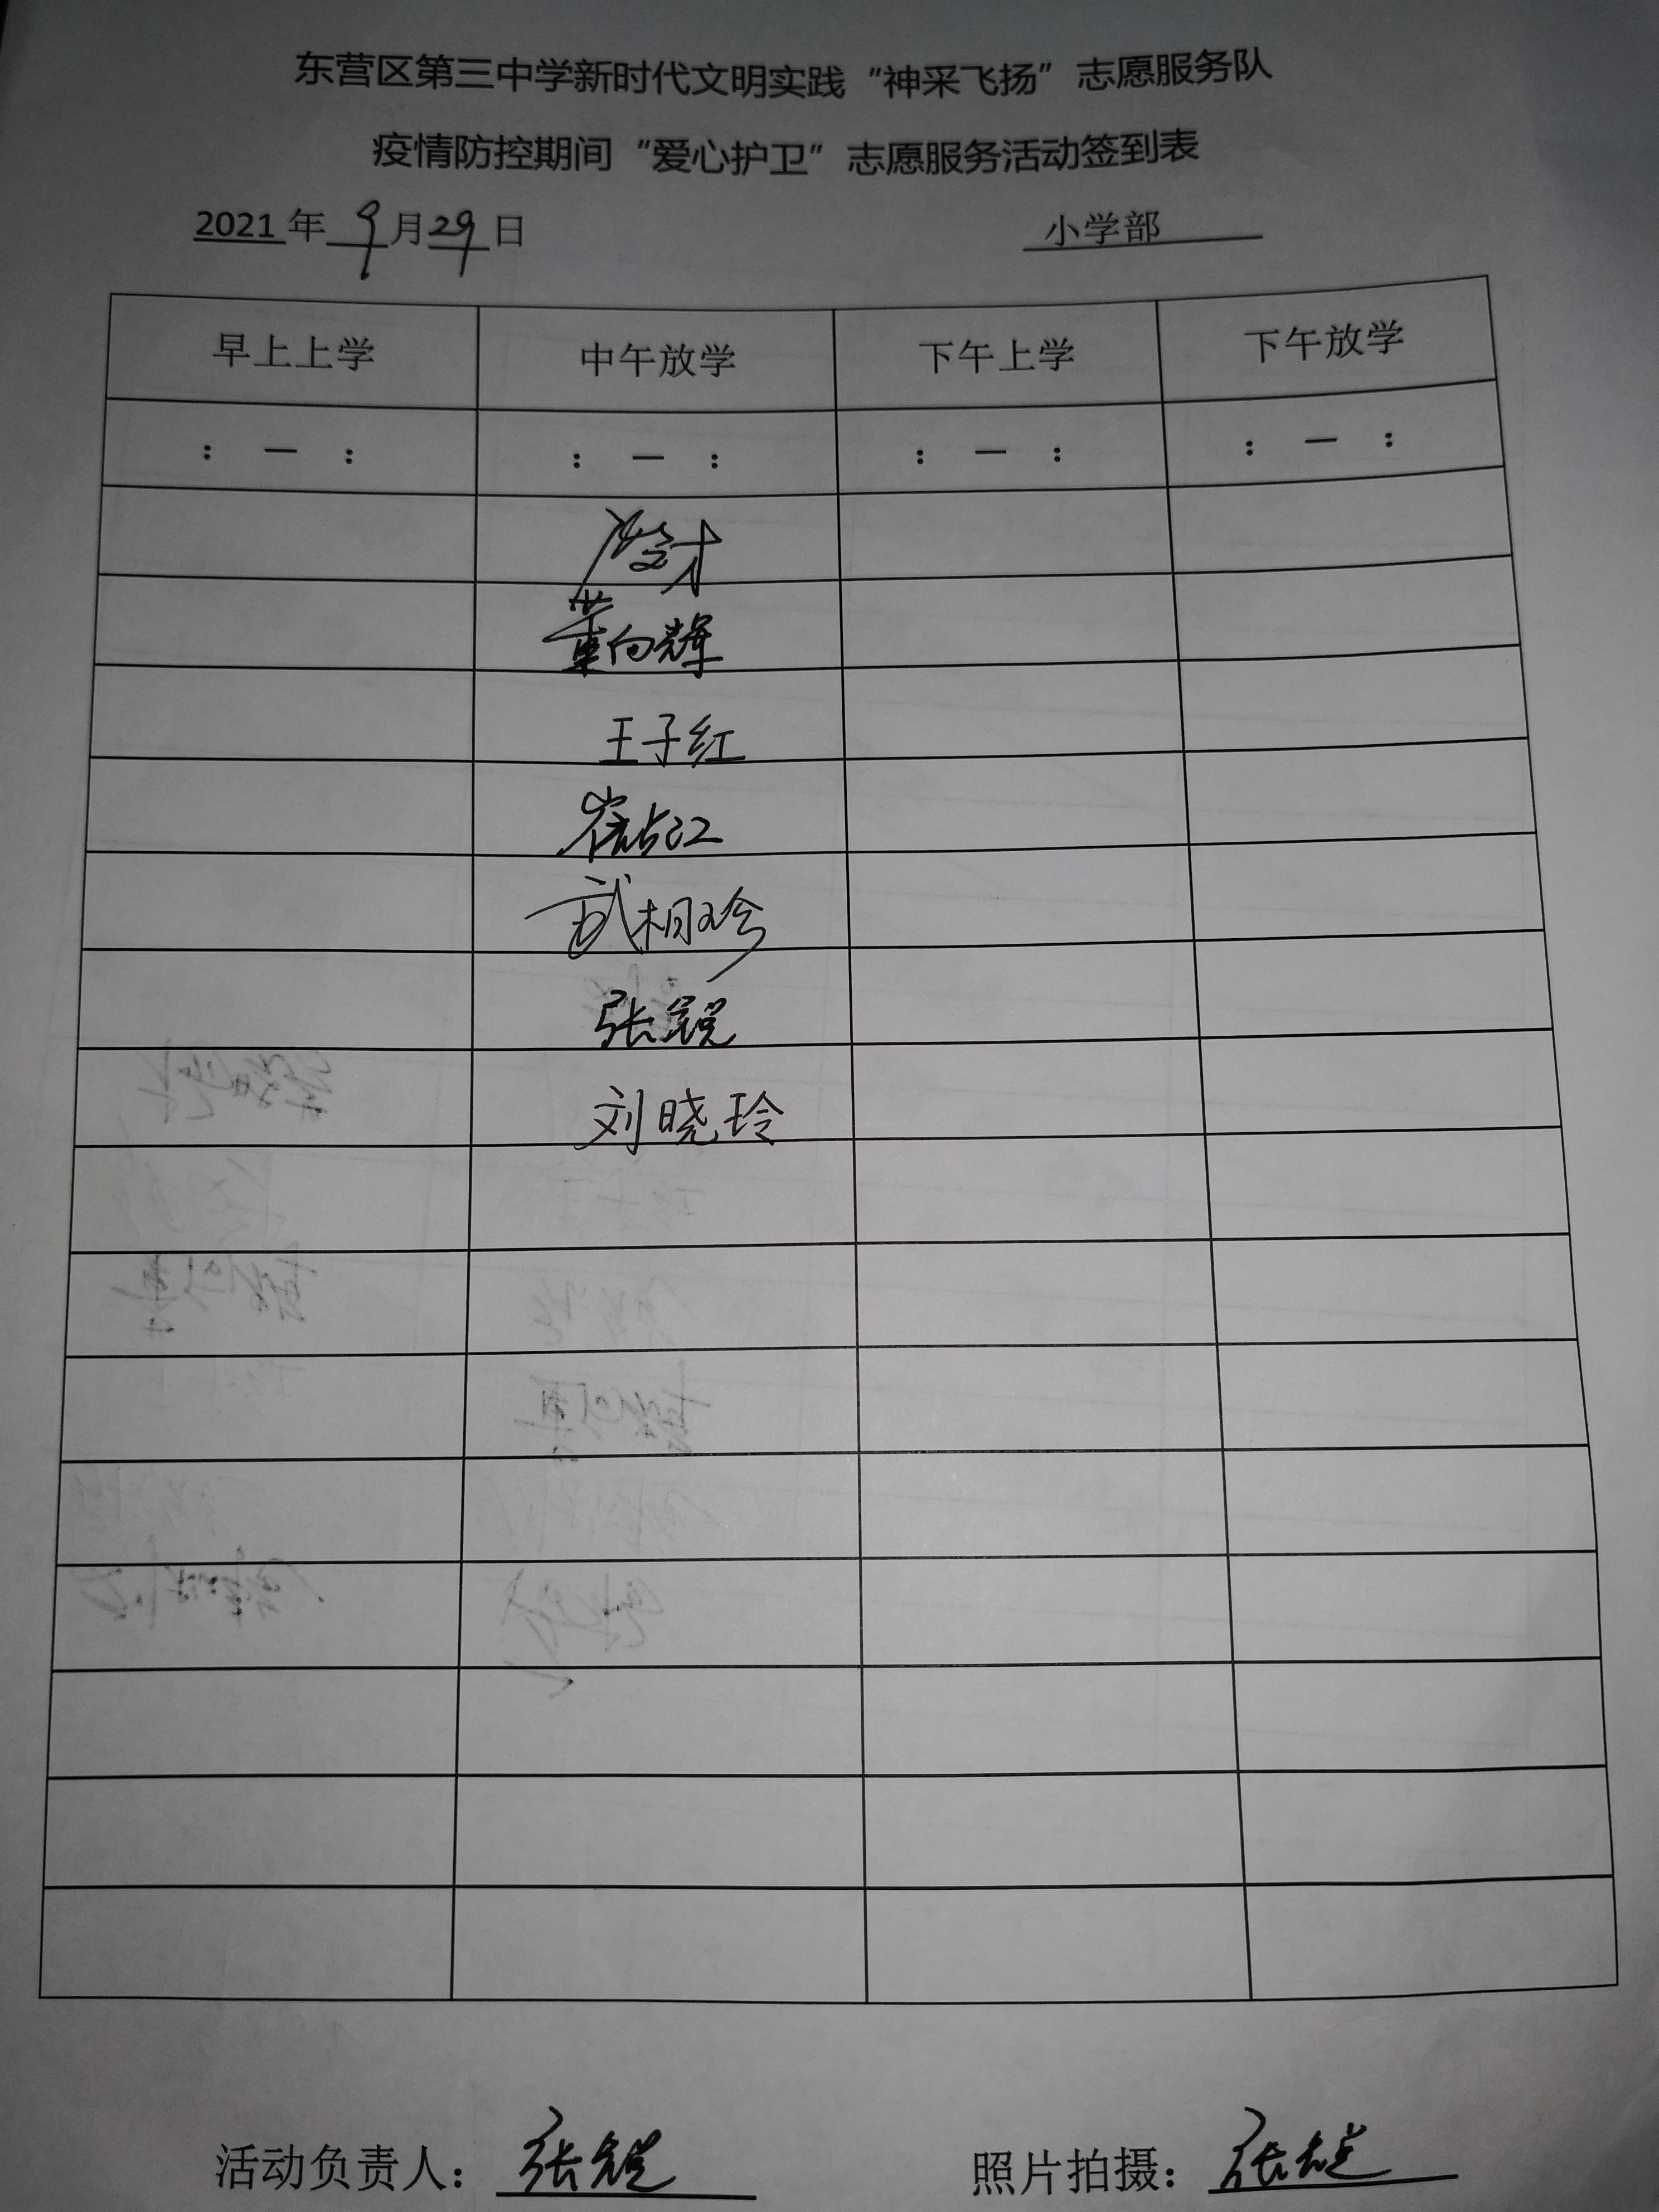 东营区第三中学新时代文明实践“神采飞扬”志愿服务队
疫情防控期间“爱心护卫”志愿服务活动签到表
2021年 9月29日 小学部
早上上学 中午放学 下午上学 下午放学
: — : : — : : — : : — :
董向辉
王子红
崔占江
武相珍
张锐
刘晓玲
活动负责人：张锐 照片拍摄：张锐